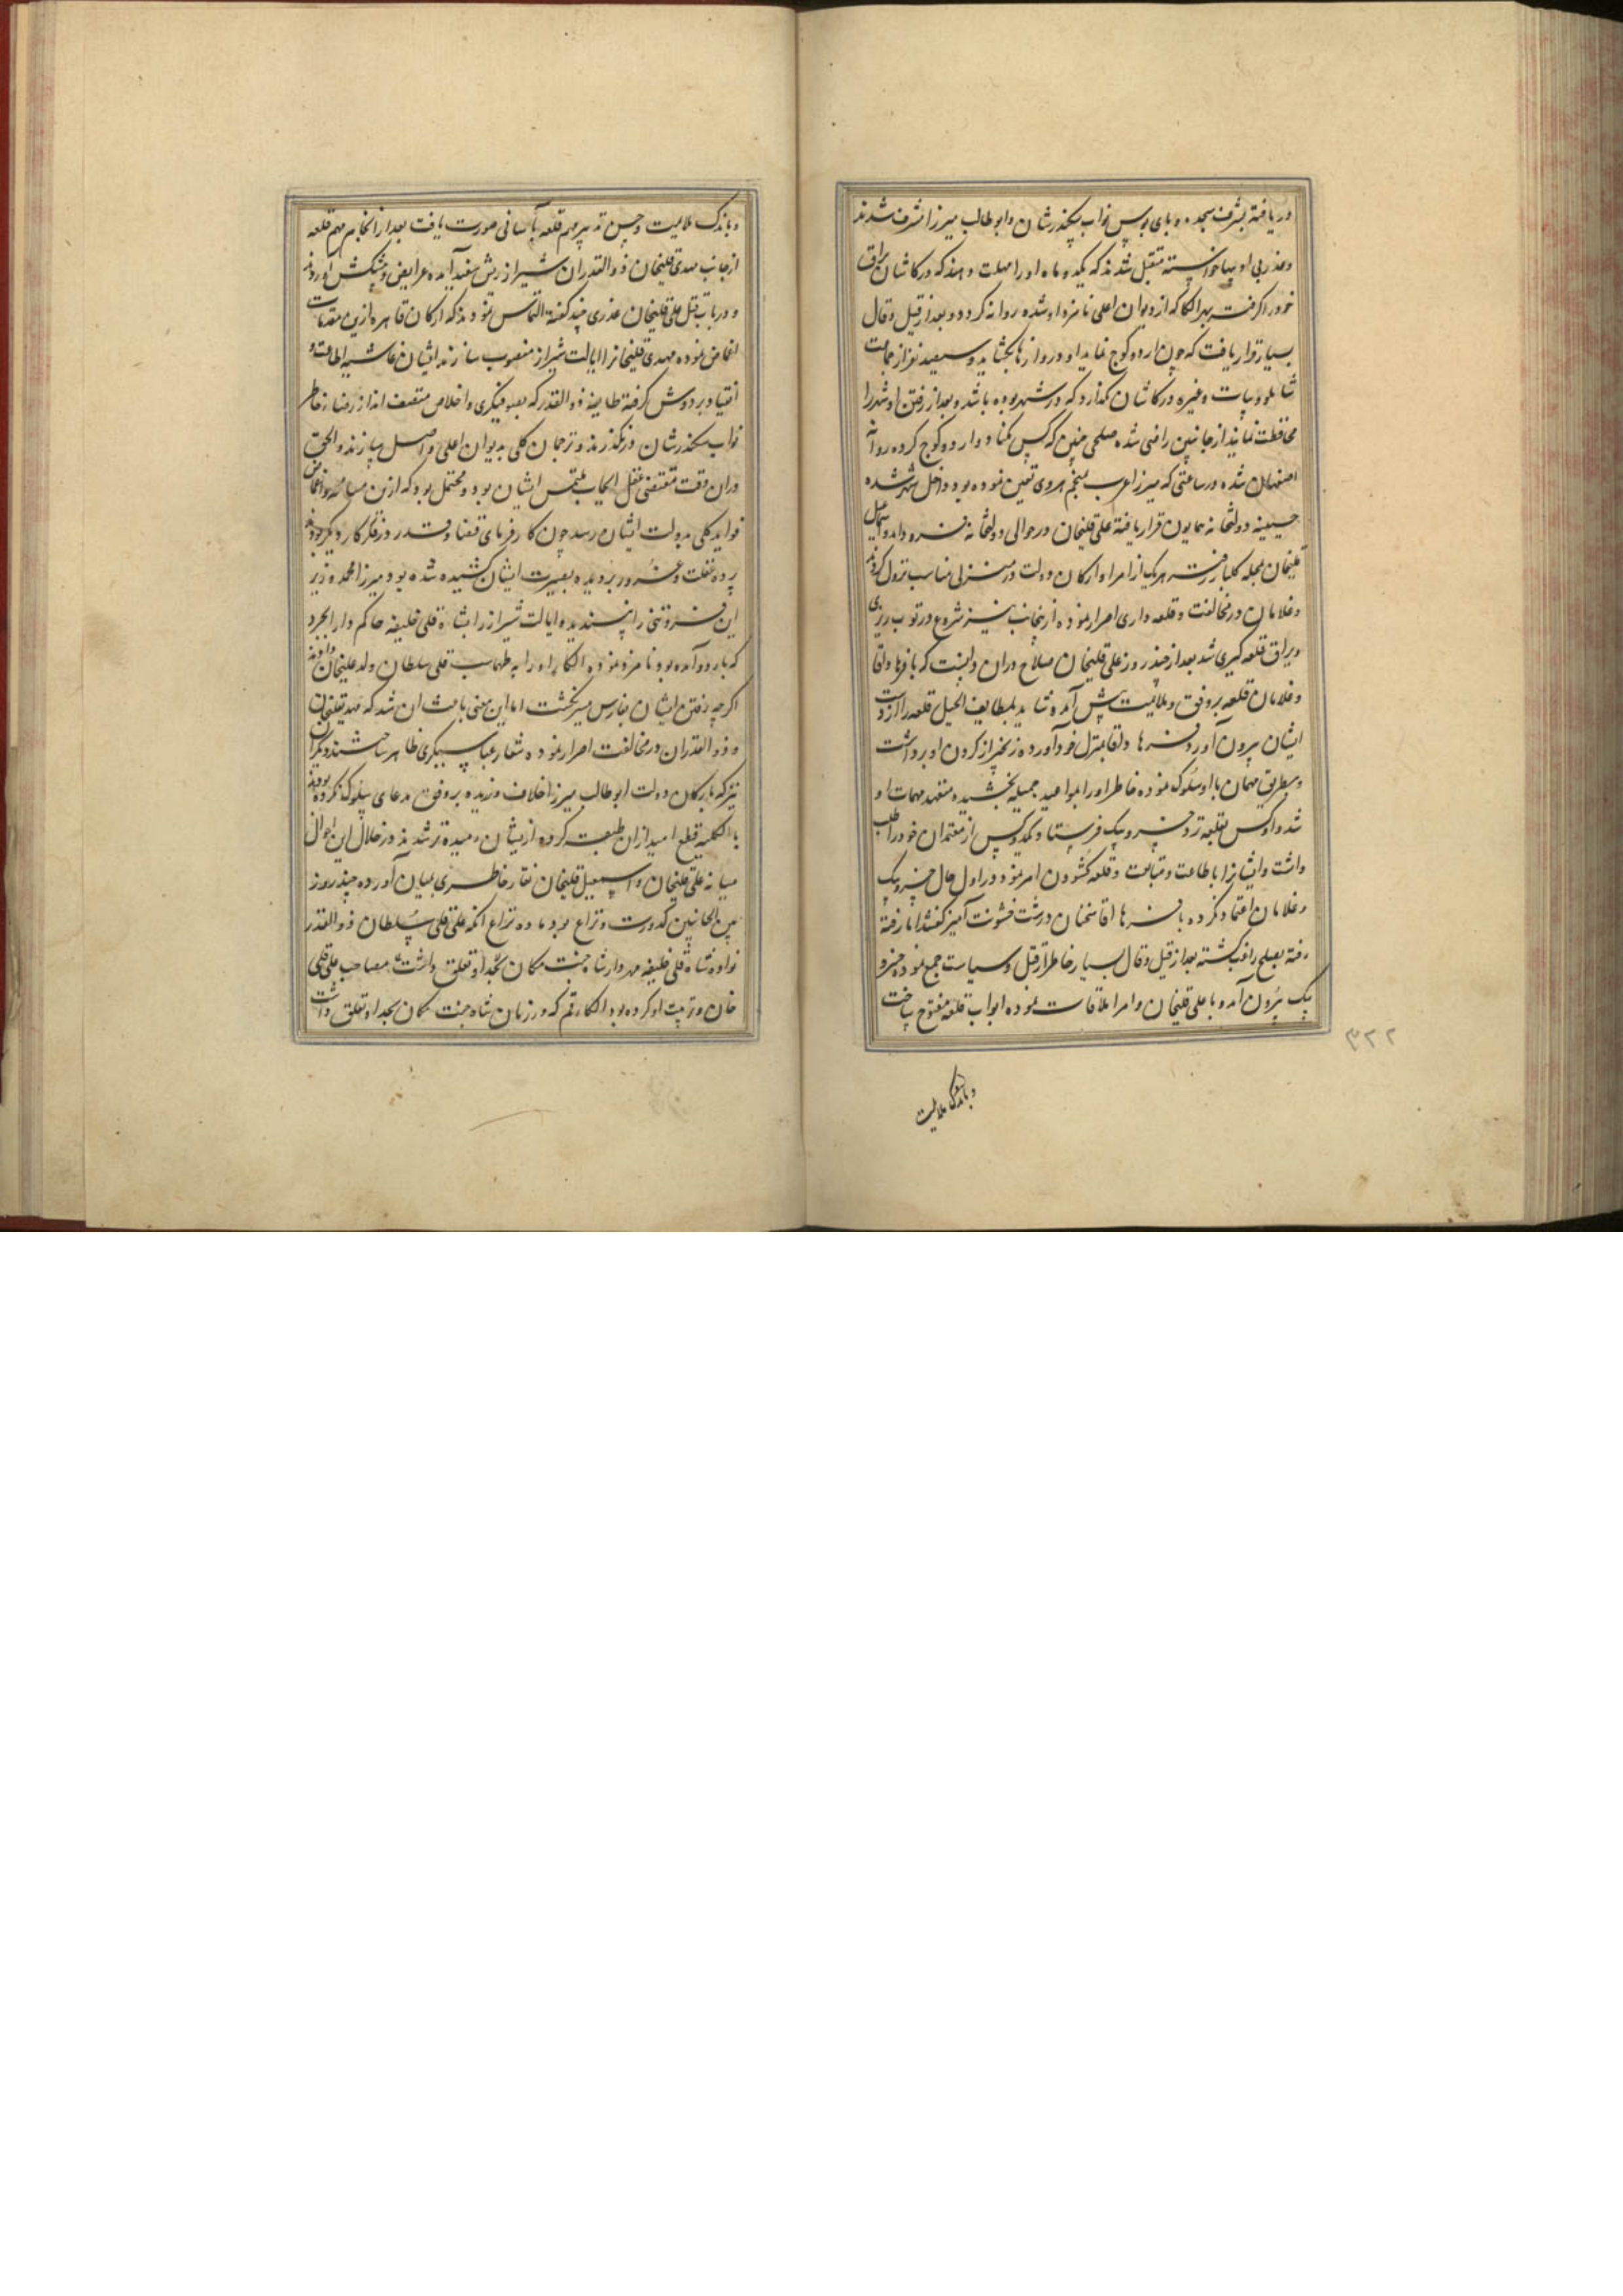 دریافته بشرف سجده و پای بوس نواب سکندرشان و ابوطالب میرزا مشرف شدند
و عذر بی ادبیها خواسته متقبل شدند که یکدو ماه او را مهلت دهند که در کاشان یراق
خود را گرفته بهر الکا که از دیوان اعلی نامزد او شده روانه گردد و بعد از قیل و قال
بسیار قرار یافت که چون اردو کوچ نماید او دروازها بگشاید و سیصد نفر از جماعت
شاملو و بیات و غیره در کاشان گذارد که در شهر بوده باشد و بعد از رفتن او شهر را
محافظت نمایند از جانبین راضی شده صلحی چنین که کس مکناد و اردو کوچ کرده روانه
اصفهان شده در ساعتی که میرزا عرب منجم هروی تعین نموده بود داخل شهر شده
حسینیه دولتخانه همایون قرار یافته علیقلیخان در حوالی دولتخانه فرود آمد و اسمعیل
قلیخان بمحله گلبار رفته هر یک از امرا و ارکان دولت در منزلی مناسب نزول کردند
و غلامان در مخالفت و قلعه داری اصرار نموده از ینجانب نیز شروع در توپ ریزی
و یراق قلعه گیری شد بعد از چند روز علیقلیخان صلاح در ان دانست که با فرهاد اقا
و غلامان قلعه بر وفق و ملایمت پیش آمده شاید بلطایف الحیل قلعه را از دست
ایشان بیرون آورد فرهاد اقا بمنزل خود آورده زنجیر از گردن او برداشت
و بطریق مهمان با او سلوک نموده خاطر او را بمواعید جمیله بخشیده متعهد مهمات او
شد و او کس بقلعه نزد خسرو بیک فرستاد و یکدو کس از معتمدان خود را طلب
داشت و ایشانرا باطاعت و متابعت و قلعه گشودن امر نمود در اول حال خسرو بیک
و غلامان اعتماد نکرده با فرهاد اقا سخنان درشت خشونت آمیز گفتند اما رفته
رفته بصلح راغب گشته بعد از قیل و قال بسیار خاطر از قتل و سیاست جمع نموده خسرو
بیک بیرون آمد و با علیقلیخان و امرا ملاقات نموده ابواب قلعه مفتوح ساخت
و باندک ملایمت
۳۲۲
و باندک ملایمت و حسن تدبیر مهم قلعه بآسانی صورت یافت بعد از انجام مهم قلعه
از جانب مهدیقلیخان ذوالقدر ان شیراز ریش سفید آمده عرایض و پیشکش آوردند
و در باب قتل علیقلیخان عذری چند گفته التماس نمودند که ارکان قاهره ازین مقدمات
اغماض نموده مهدیقلیخانرا بایالت شیراز منصوب سازند ایشان غاشیه اطاعت و
انقیاد بر دوش گرفته طایفه ذوالقدر که بصوفیگری و اخلاص متصف اند از رضای خاطر
نواب سکندرشان در نگذرند و ترجمان کلی بدیوان اعلی واصل سازند و الحق
در ان وقت مقتضی عقل ایجاب ملتمس ایشان بود و محتمل بود که ازین مسامحه و اغماض
فواید کلی بدولت ایشان رسد چون کار فرمای قضا و قدر در فکر کار دیگر بود
پرده غفلت و غرور بر دیده بصیرت ایشان کشیده شده بود میرزا محمد وزیر
این فروتنی را نپسندیده ایالت شیراز را بشاهقلی خلیفه حاکم دارابجرد
که باردو آمده بود نامزد نموده الکاء او را به طهماسب قلی سلطان ولد علیخان دادند
اگر چه رفتن ایشان بفارس میسر نگشت اما این معنی باعث ان شد که مهدیقلیخان
و ذوالقدران در مخالفت اصرار نموده شعار عباسیگری ظاهر ساختند و دیگران
نیز که با ارکان دولت ابوطالب میرزا خلاف ورزیده بر وفق مدعای سلوک نکرده بودند
بالکلیه قطع امید ازان طبقه کرده از یشان رمیده تر شدند در خلال این احوال
میانه علیقلیخان و اسمعیل قلیخان نقار خاطری بمیان آورده چند روز
بین الجانبین کدورت و نزاع بود ماده نزاع انکه علیقلی سلطان ذوالقدر
نواده شاهقلی خلیفه مهردار شاه جنت مکان بجد او تعلق داشت مصاحب علیقلی
خان و تربیت او کرده بود الکاء قم که در زمان شاه جنت مکان بجد او تعلق داشت